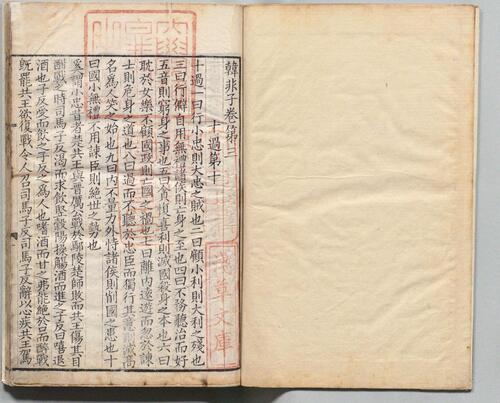 韓非子卷第三
十過第十
十過一曰行小忠則大忠之賊也二曰顧小利則大利之殘也
三曰行僻自用無禮諸侯則亡身之至也四曰不務聽治而好
五音則窮身之事也五曰貪愎喜利則滅國殺身之本也六曰
耽於女樂不顧國政則亡國之禍也七曰離內遠遊而忽於諫
士則危身之道也八曰過而不聽於忠臣而獨行其意則滅高
名爲人笑之始也九曰內不量力外恃諸侯則削國之患也十
曰國小無禮不用諫臣則絕世之勢也
奚謂小忠昔者楚共王與晉厲公戰於鄢陵楚師敗而共王傷其目
酣戰之時司馬子反渴而求飲豎穀陽操觴酒而進之子反曰嘻退
酒也子反受而飲之子反之爲人也嗜酒而甘之弗能絕於口而醉戰
既罷共王欲復戰令人召司馬子反司馬子反辭以心疾共王駕
淺草文庫